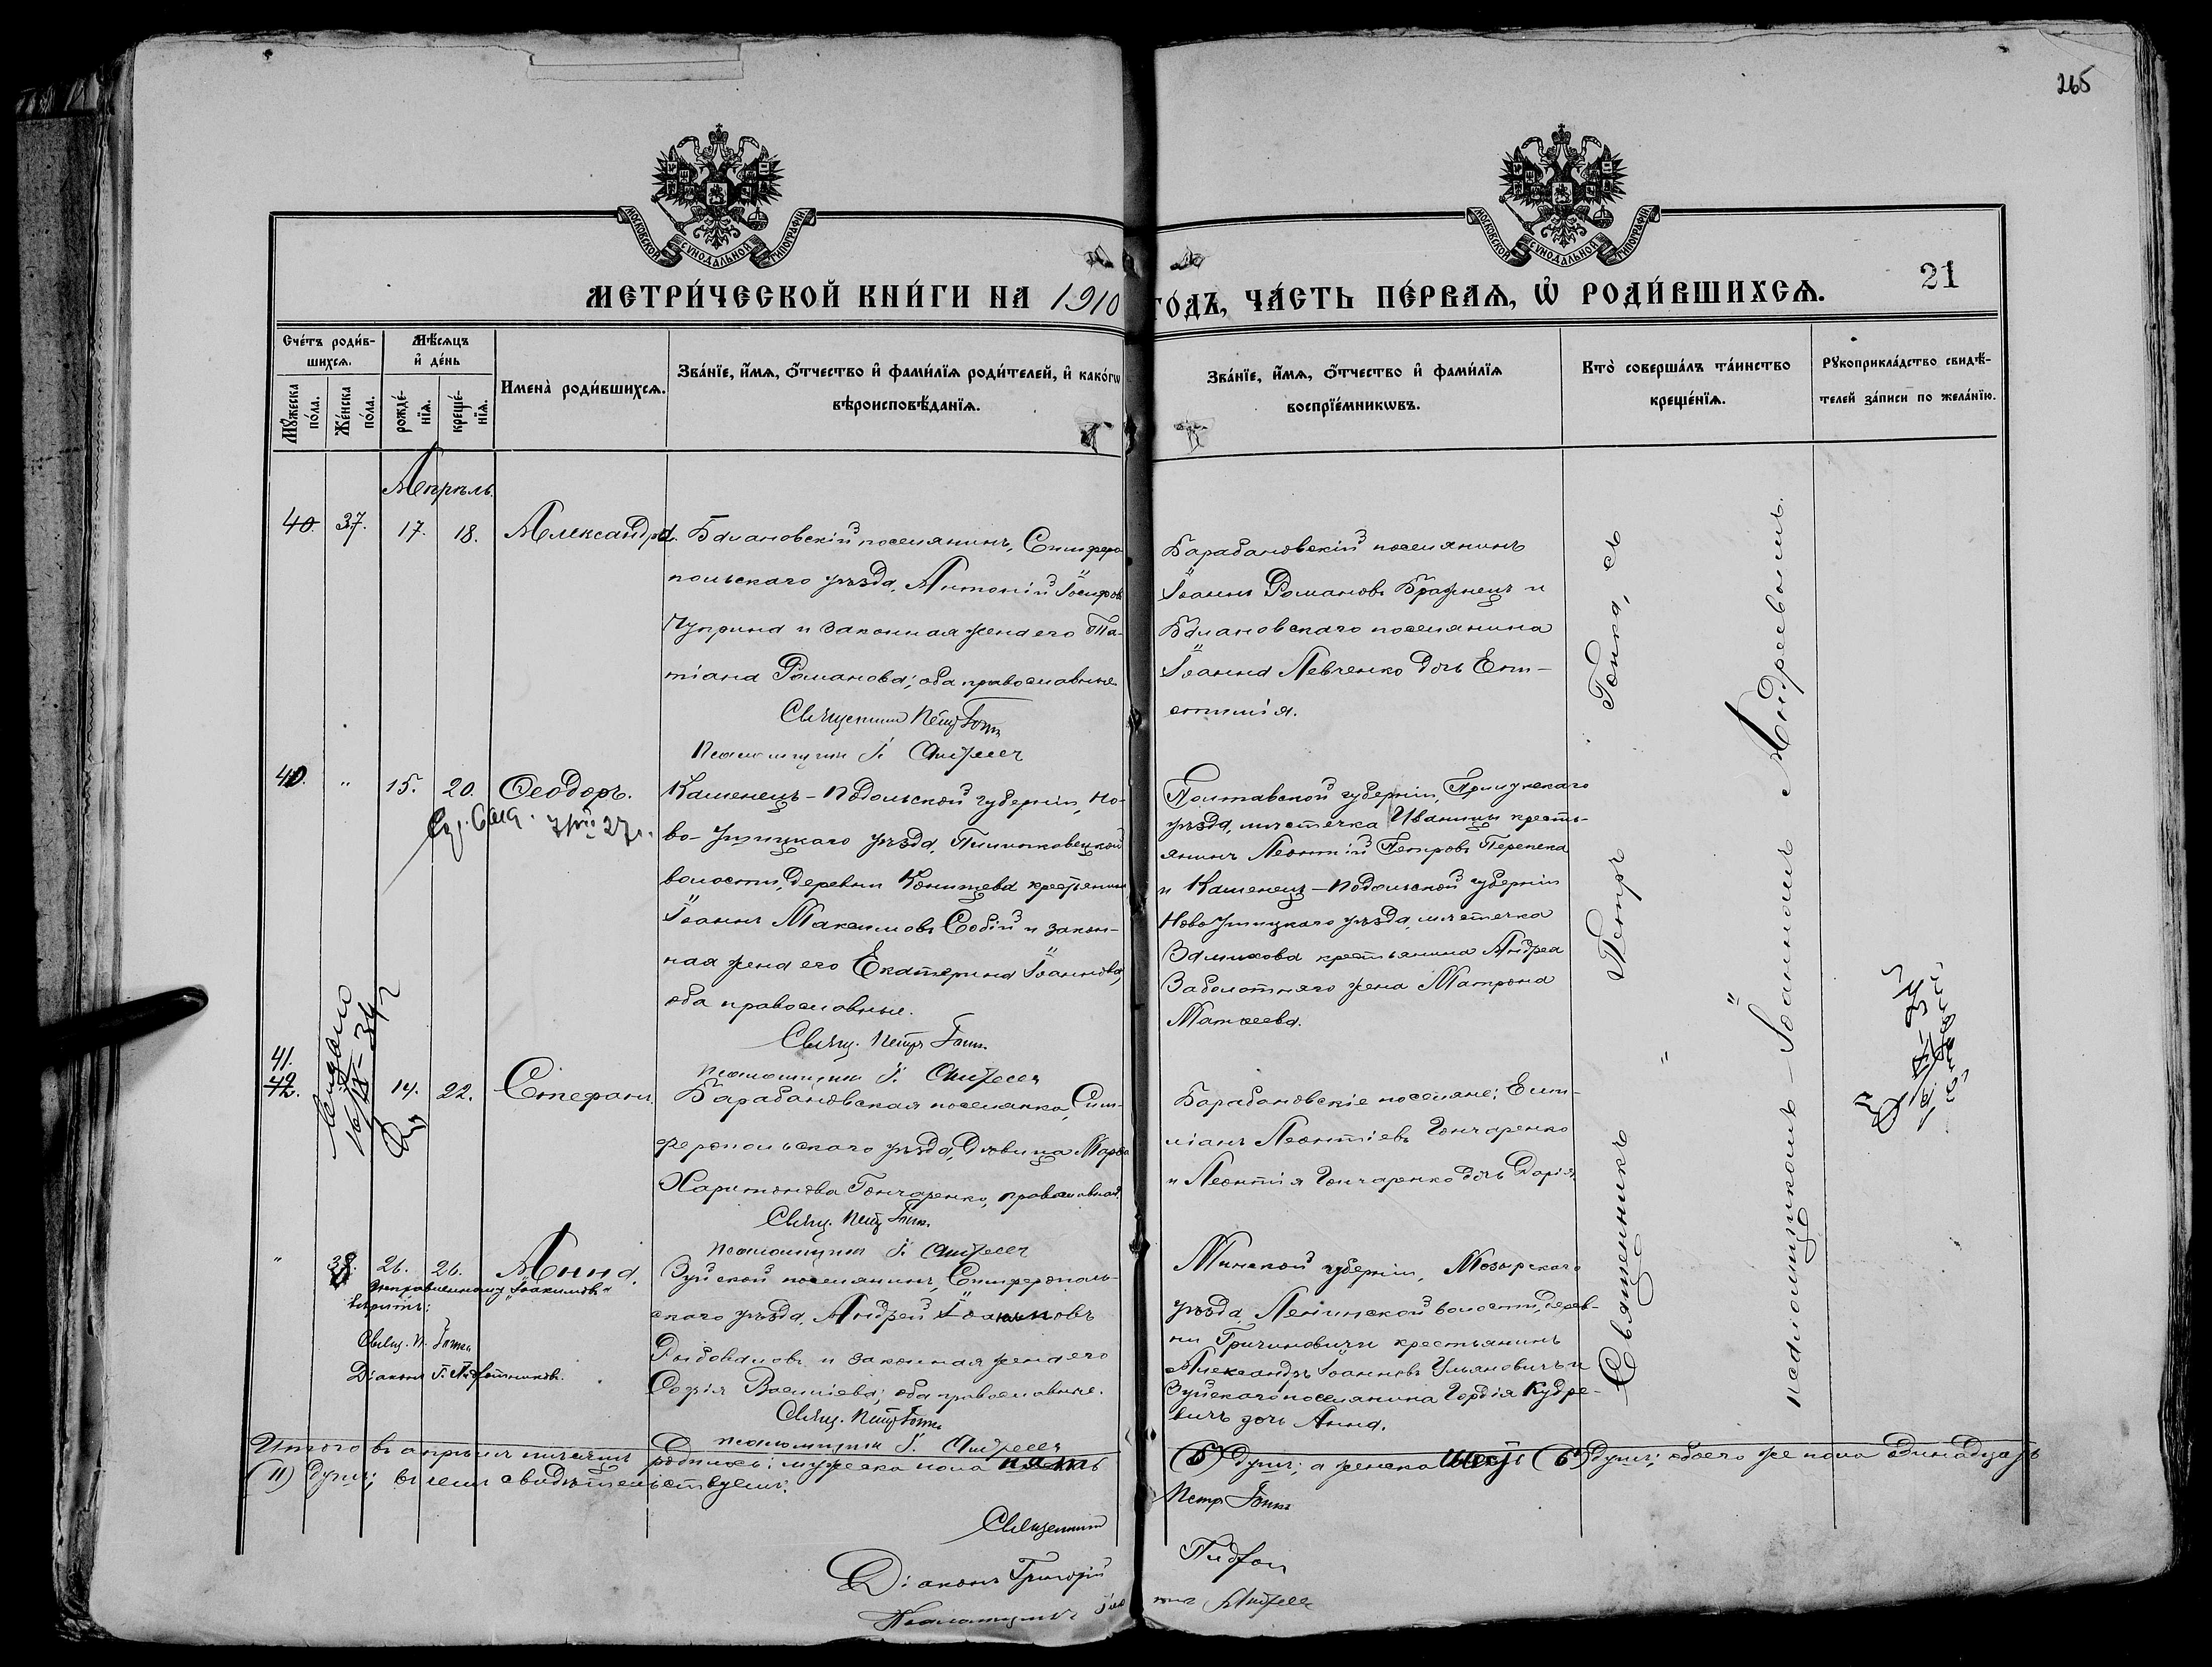 265
МОСКОВСКОЙ СѴНОДАЛЬНОЙ ТИПОГРАФІИ
МОСКОВСКОЙ СѴНОДАЛЬНОЙ ТИПОГРАФІИ
МЕТРИ́ЧЕСКОЙ КНИ́ГИ НА 1910 ГО́ДЪ, ЧА́СТЬ ПЕ́РВАѦ, Ѡ҆ РОДИ́ВШИХСѦ.
21
Сче́тъ роди́в-
шихсѧ.
Мꙋ́жеска
по́ла.
Же́нска
по́ла.
Мѣ́сѧцъ
и҆ де́нь
рожде́-
нїѧ.
креще́-
нїѧ.
Имена̀ роди́вшихсѧ.
Зва́нїе, и҆́мѧ, ѻ҆́тчество и҆ фами́лїѧ роди́телей, и҆ како́гѡ
вѣроисповѣ́данїѧ.
Зва́нїе, и҆́мѧ, ѻ҆́тчество и҆ фами́лїѧ
воспрїе́мникѡвъ.
Кто̀ соверша́лъ та́инство
креще́нїѧ.
Рꙋкоприкла́дство свидѣ́-
телей за́писи по жела́нїю.
Апрѣль.
40. 37. 17. 18. Александра.
Балановскій поселянинъ, Симферо-
польскаго уѣзда, Антоній Іосифовъ
Чуприна и законная жена его Та-
тіана Романова; оба православные
Священникъ Петръ Гонка
Псаломщикъ І. Андреевъ
Барабановскій поселянинъ
Іоаннъ Романовъ Бражнецъ и
Балановскаго поселянина
Іоанна Левченко дочь Епи-
стимія.
40. " 15. 20. Ѳеодоръ.
27г.
Каменецъ-Подольской губерніи, Но-
во-Ушицкаго уѣзда,
волости, деревни Конищева крестьянинъ
Іоаннъ Максимовъ Собій и закон-
ная жена его Екатерина Іоаннова,
оба православные.
Свящ. Петръ Гонка
Псаломщикъ І. Андреевъ
Полтавской губерніи, Прилукскаго
уѣзда, мѣстечка Иваницы кресть-
янинъ Леонтій Петровъ Перепека
и Каменецъ-Подольской губерніи
Ново Ушицкаго уѣзда, мѣстечка
Замихова крестьянина Андрея
Заболотняго жена Матрона
Матѳеева.
41.
42. 14. 22. Стефанъ.
Барабановская поселянка, Сим-
феропольскаго уѣзда, дѣвица Марѳа
Харитонова Гончаренко, православная.
Свящ. Петръ Гонка
Псаломщикъ І. Андреевъ
Барабановскіе поселяне: Еми-
ліанъ Леонтіевъ Гончаренко
и Леонтія Гончаренко дочь Дарія.
" 38. 26. 26. Анна.
Исправленному "Іоакимовъ"
вѣрить:
Свящ. П. Гонка
Діаконъ Г.
Зуйской поселянинъ, Симферополь-
скаго уѣзда, Андрей Іоакимовъ
Рыбоваловъ и законная жена его
Софія Васильева; оба православные.
Свящ. Петръ Гонка
Псаломщикъ І. Андреевъ
Минской губерніи, Мозырскаго
уѣзда, Ленинской волости, дерев-
ни Гричиновичи крестьянинъ
Александръ Іоанновъ Ульяновичъ и
Зуйскаго поселянина Гордія Кудре-
вичъ дочь Анна.
Священникъ Петръ Гонка, съ
псаломщикомъ Іоанномъ Андреевымъ.
Итого въ апрѣлѣ мѣсяцѣ родилось: мужеска пола пять (5) душъ; а женска шесть (6) душъ; обоего же пола одинадцать
(11) душъ; въ чемъ свидѣтельствуемъ:
Священникъ Петръ Гонка
Діаконъ Григорій
Псаломщикъ Іоаннъ Андреевъ